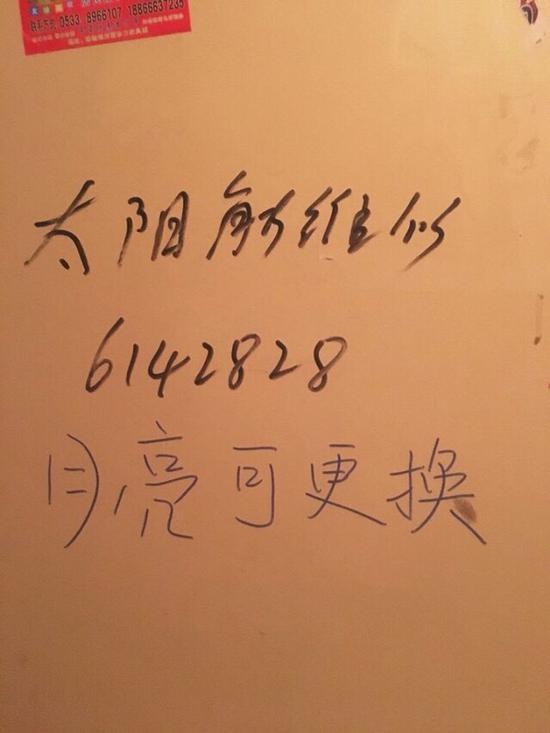 0533 8966107 18866637235
太阳能维修
6142828
月亮可更换